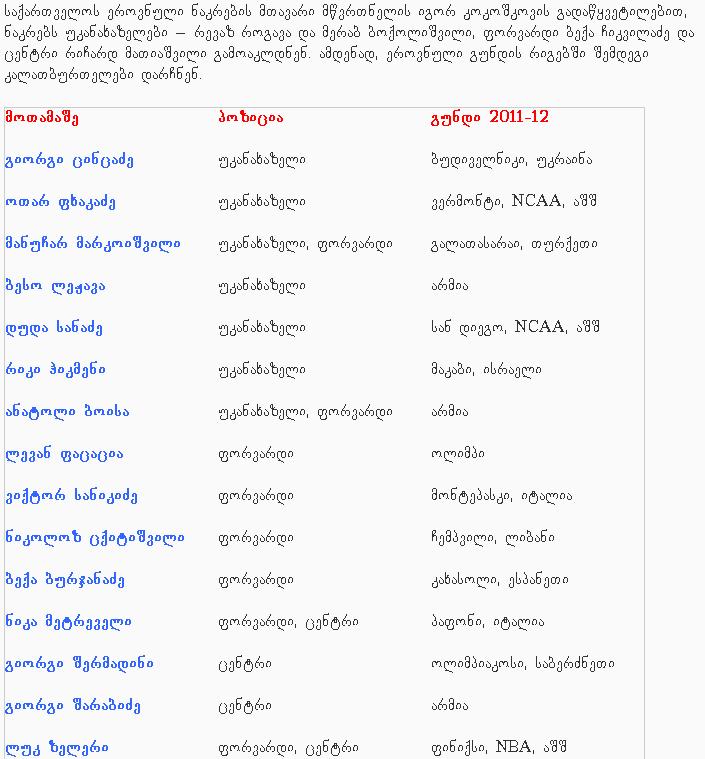 საქართველოს ეროვნული ნაკრების მთავარი მწვრთნელის იგორ კოკოშკოვის გადაწყვეტილებით,
ნაკრებს უკანახაზელები – რევაზ როგავა და მერაბ ბოქოლიშვილი, ფორვარდი ბექა ჩიკვილაძე და
ცენტრი რიჩარდ მათიაშვილი გამოაკლდნენ. ამდენად, ეროვნული გუნდის რიგებში შემდეგი
კალათბურთელები დარჩნენ.
მოთამაშე პოზიცია გუნდი 2011-12
გიორგი ცინცაძე უკანახაზელი ბუდიველნიკი, უკრაინა
ოთარ ფხაკაძე უკანახაზელი ვერმონტი, NCAA, აშშ
მანუჩარ მარკოიშვილი უკანახაზელი, ფორვარდი გალათასარაი, თურქეთი
ბესო ლეჟავა უკანახაზელი არმია
დუდა სანაძე უკანახაზელი სან დიეგო, NCAA, აშშ
რიკი ჰიკმენი უკანახაზელი მაკაბი, ისრაელი
ანატოლი ბოისა უკანახაზელი, ფორვარდი არმია
ლევან ფაცაცია ფორვარდი ოლიმპი
ვიქტორ სანიკიძე ფორვარდი მონტეპასკი, იტალია
ნიკოლოზ ცქიტიშვილი ფორვარდი ჩემპვილი, ლიბანი
ბექა ბურჯანაძე ფორვარდი კახასოლი, ესპანეთი
ნიკა მეტრეველი ფორვარდი, ცენტრი პაფონი, იტალია
გიორგი შერმადინი ცენტრი ოლიმპიაკოსი, საბერძნეთი
გიორგი შარაბიძე ცენტრი არმია
ლუკ ზელერი ფორვარდი, ცენტრი ფინიქსი, NBA, აშშ